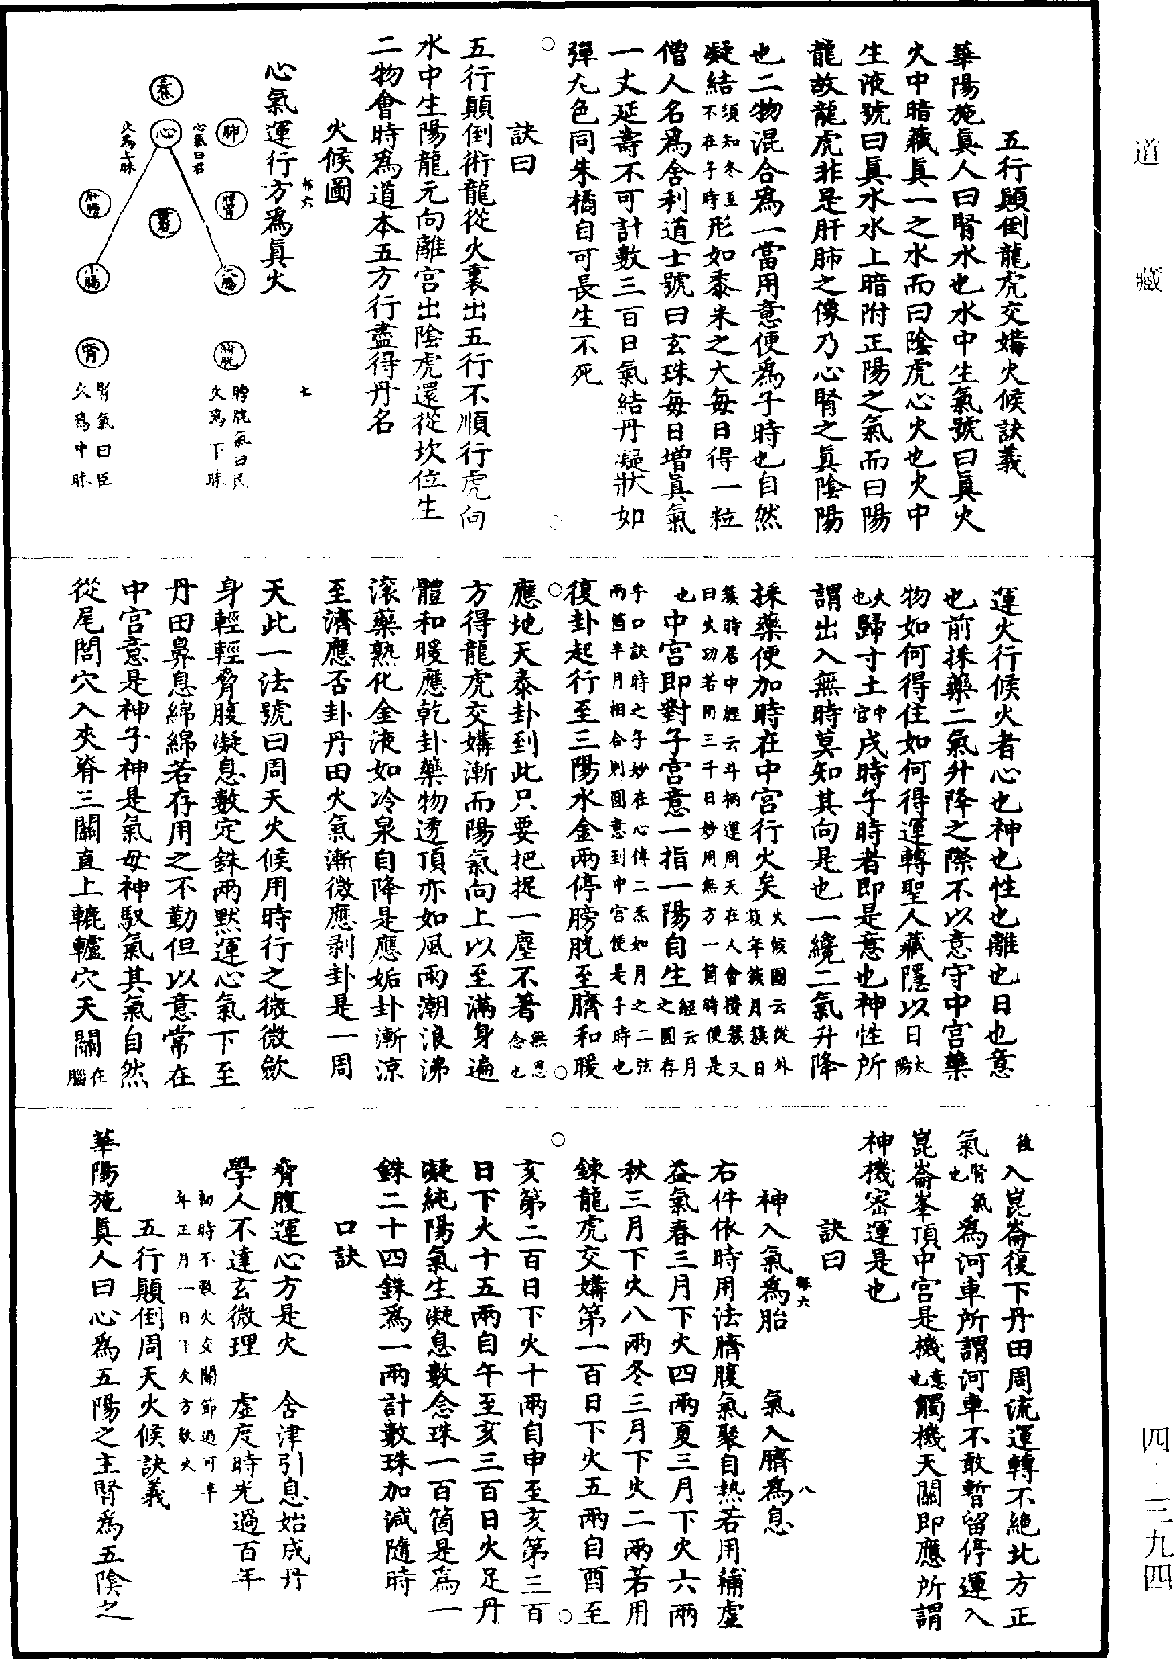 道藏
五行顛倒龍虎交媾火候訣義
華陽施真人曰腎水也水中生氣號曰真火
火中暗藏真一之水而曰陰虎心火也火中
生液號曰真水水上暗附正陽之氣而曰陽
龍故龍虎非是肝肺之像乃心腎之真陰陽
也二物混合為一當用意便為子時也自然
凝結須知冬至不在子時形如黍米之大每日得一粒
僧人名為舍利道士號曰玄珠每日增真氣
一丈延壽不可計數三百日氣結丹凝狀如
彈丸色同朱橘自可長生不死
訣曰
五行顛倒術龍從火裏出五行不順行虎向
水中生陽龍元向離宮出陰虎還從坎位生
二物會時為道本五方行盡得丹名
火候圖
心氣運行方為真火
七
肺
心
心氣曰君
火為上昧
小腸
腎
腎氣曰臣
火為中昧
膀胱
膀胱氣曰民
火為下昧
運火行候火者心也神也性也離也日也意
也前採藥二氣升降之際不以意守中宮藥
物如何得住如何得運轉聖人藏隱以日太陽
火也歸寸土中宮戌時子時者即是意也神性所
謂出入無時莫知其向是也一纔二氣升降
採藥便加時在中宮行火矣火候圖云從外簇年簇月簇日
簇時居中經云斗柄運周天在人會攢簇又
曰火功若問三千日妙用無方一箇時便是
也中宮即對子宮意一指一陽自生經云月之圓存
乎口訣時之子妙在心傳二炁如月之二弦
兩箇半月相合則圓意到中宮便是子時也
復卦起行至三陽水金兩停膀胱至臍和暖
應地天泰卦到此只要把捉一塵不著無思念也
方得龍虎交媾漸而陽氣向上以至滿身遍
體和暖應乾卦藥物透頂亦如風雨潮浪沸
滾藥熟化金液如冷泉自降是應姤卦漸涼
至濟應否卦丹田火氣漸微應剥卦是一周
天此一法號曰周天火候用時行之微微歛
身輕輕脅腹凝息數定銖兩默運心氣下至
丹田鼻息綿綿若存用之不勤但以意常在
中宮意是神子神是氣母神馭氣其氣自然
從尾閭穴入夾脊三關直上轆轤穴天關在腦
後入崑崙復下丹田周流運轉不絕北方正
氣腎氣也為河車所謂河車不敢暫留停運入
崑崙峯頂中宮是機意也觸機天關即應所謂
神機密運是也
訣曰
神入氣為胎　氣入臍為息
八
右件依時用法臍腹氣聚自熱若用補虛
益氣春三月下火四兩夏三月下火六兩
秋三月下火八兩冬三月下火二兩若用
鍊龍虎交媾第一百日下火五兩自酉至
亥第二百日下火十兩自申至亥第三百
日下火十五兩自午至亥三百日火足丹
凝純陽氣生凝息數念珠一百箇是為一
銖二十四銖為一兩計數珠加減隨時
口訣
脅腹運心方是火　含津引息始成丹
學人不達玄微理　虛度時光過百年
初時不數火交關節過可半
年正月一日下火方數火
五行顛倒周天火候訣義
華陽施真人曰心為五陽之主腎為五陰之
四－三九四